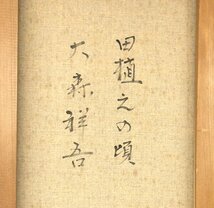 田植えの頃
大森祥吾